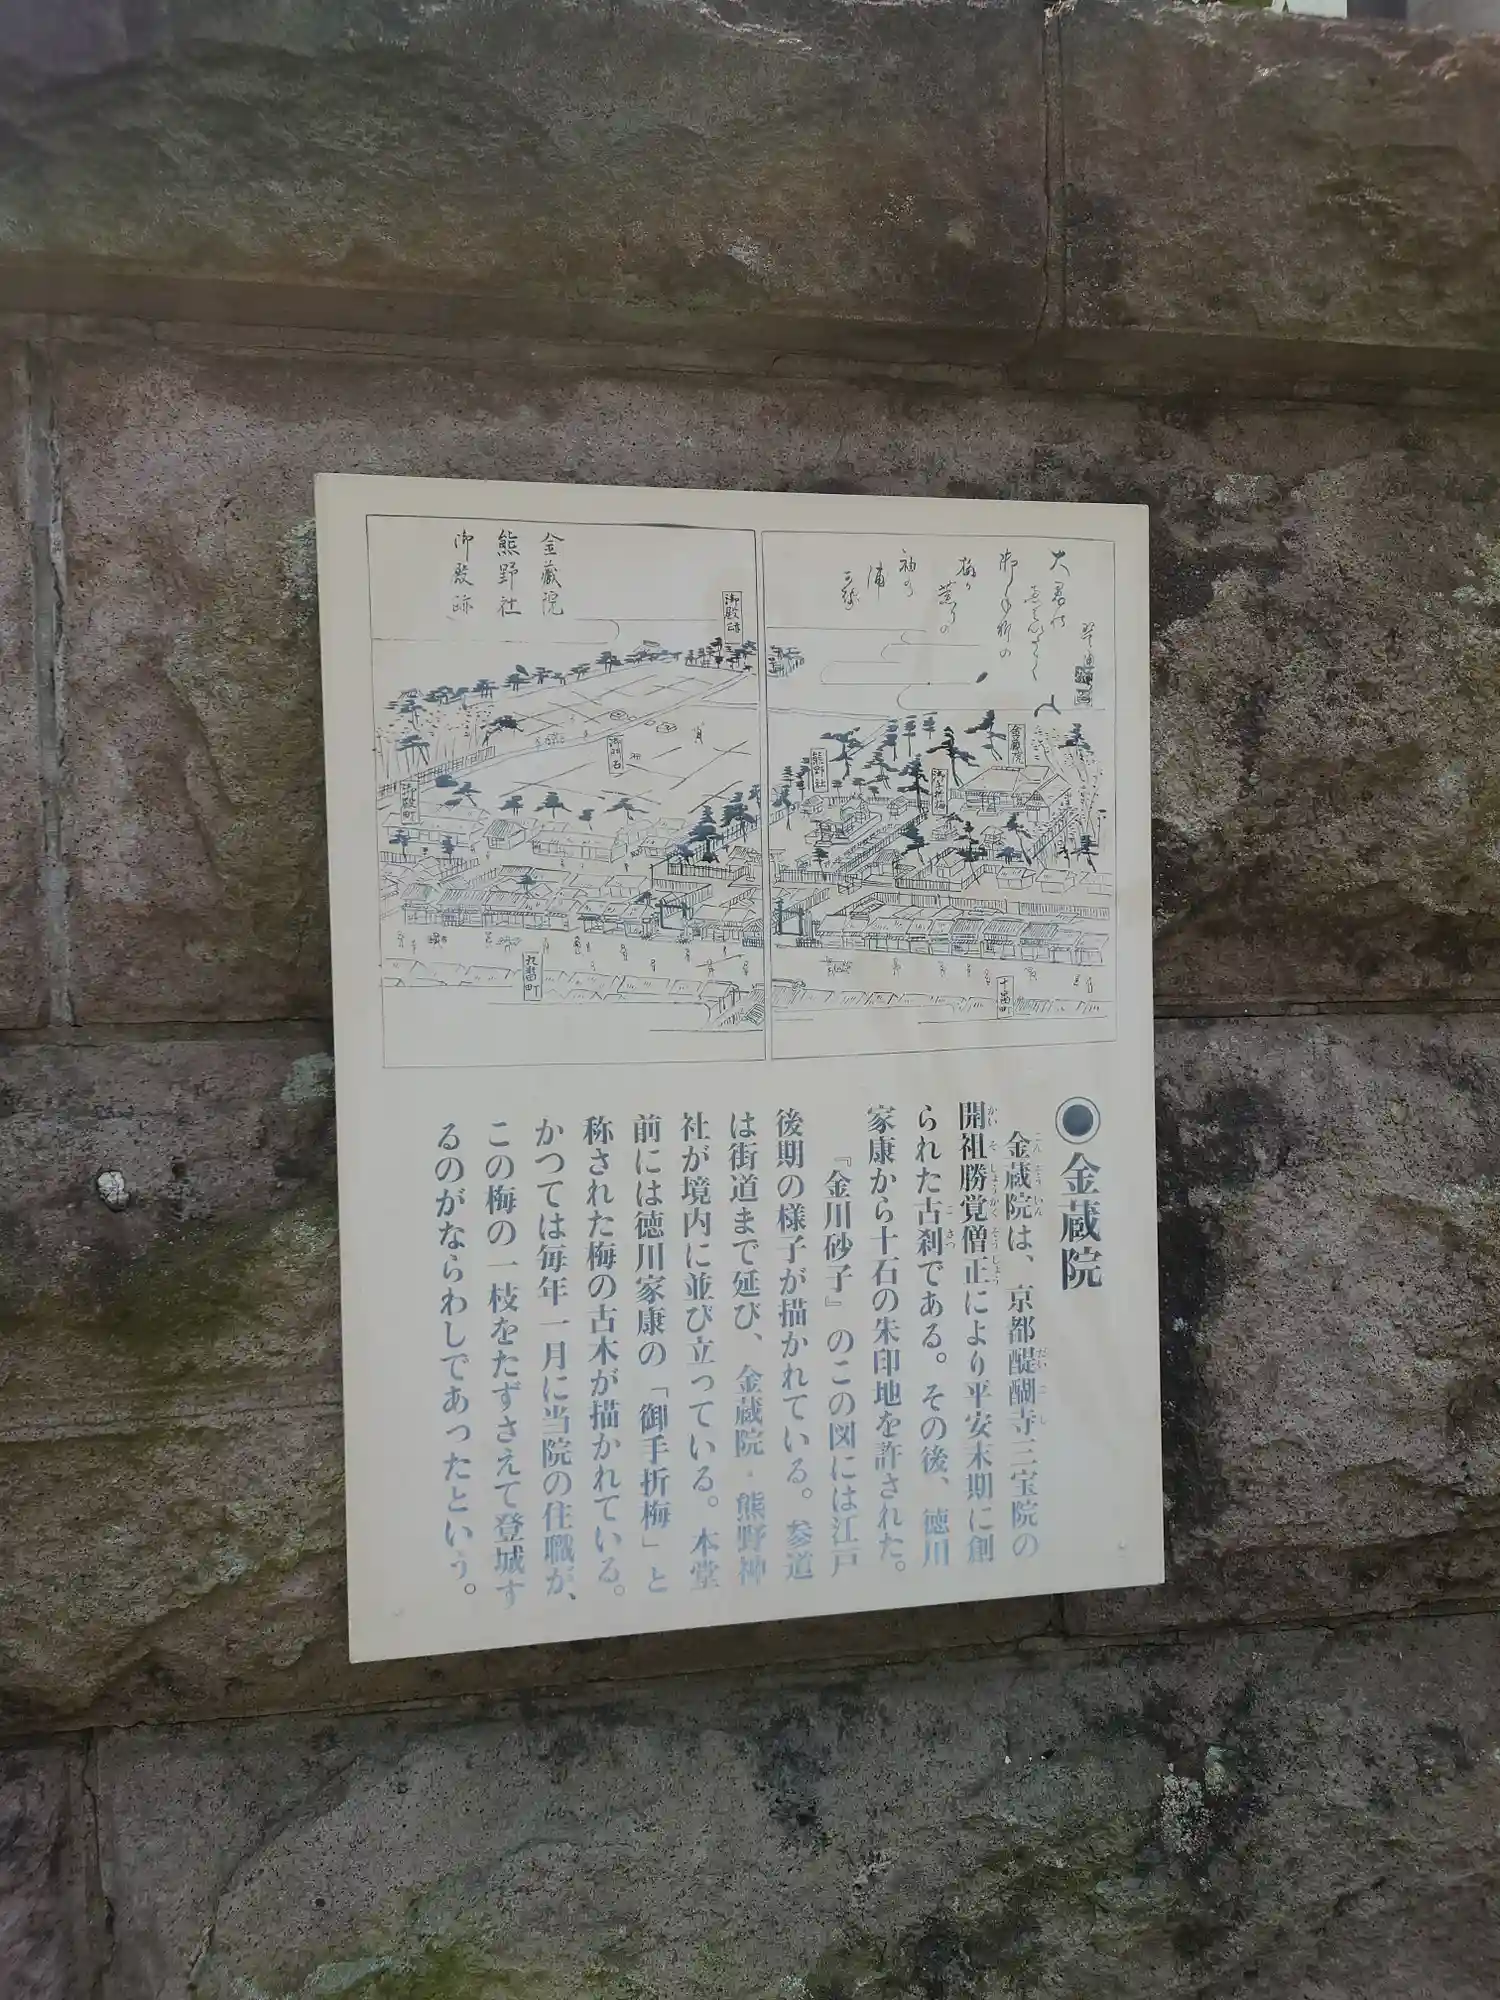 金蔵院
熊野社
御殿跡
御殿跡
御殿町
九番町
熊野社
金蔵院
十番町
◉金蔵院
こんぞういん
金蔵院は、京都醍醐寺三宝院の
だいごじ
開祖勝覚僧正により平安末期に創
かいそしょうかくそうじょう
られた古刹である。その後、徳川
こさつ
家康から十石の朱印地を許された。
『金川砂子』のこの図には江戸
後期の様子が描かれている。参道
は街道まで延び、金蔵院・熊野神
社が境内に並び立っている。本堂
前には徳川家康の「御手折梅」と
称された梅の古木が描かれている。
かつては毎年一月に当院の住職が、
この梅の一枝をたずさえて登城す
るのがならわしであったという。